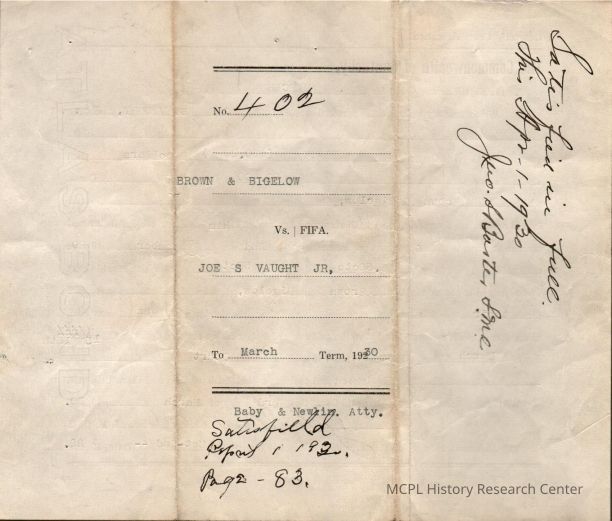 No. 402
BROWN & BIGELOW
Vs. | FIFA.
JOE S VAUGHT JR,
To March Term, 1930
Baby & Newlin. Atty.
Satisfield
April 1 1930.
Page - 83.
Satisfied in full.
This Apr-1-1930
Jno. S
MCPL History Research Center